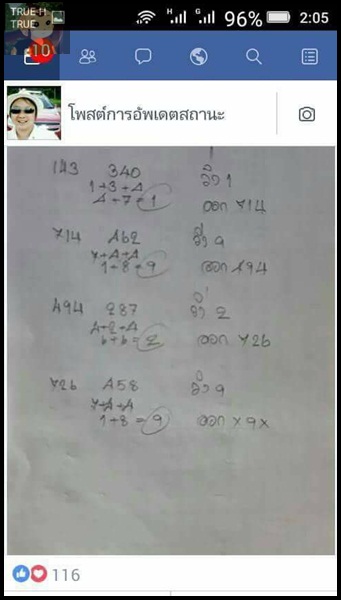 TRUE-H
TRUE
H G 96% 2:05
10
โพสต์การอัพเดตสถานะ
143 340 วิ่ง 1
1+3+4
4+7=1 ออก 714
714 462 วิ่ง 9
7+4+4
1+8=9 ออก 494
494 287 วิ่ง 2
4+2+4
6+6=2 ออก 726
726 458 วิ่ง 9
7+4+4
1+8=9 ออก x9x
116